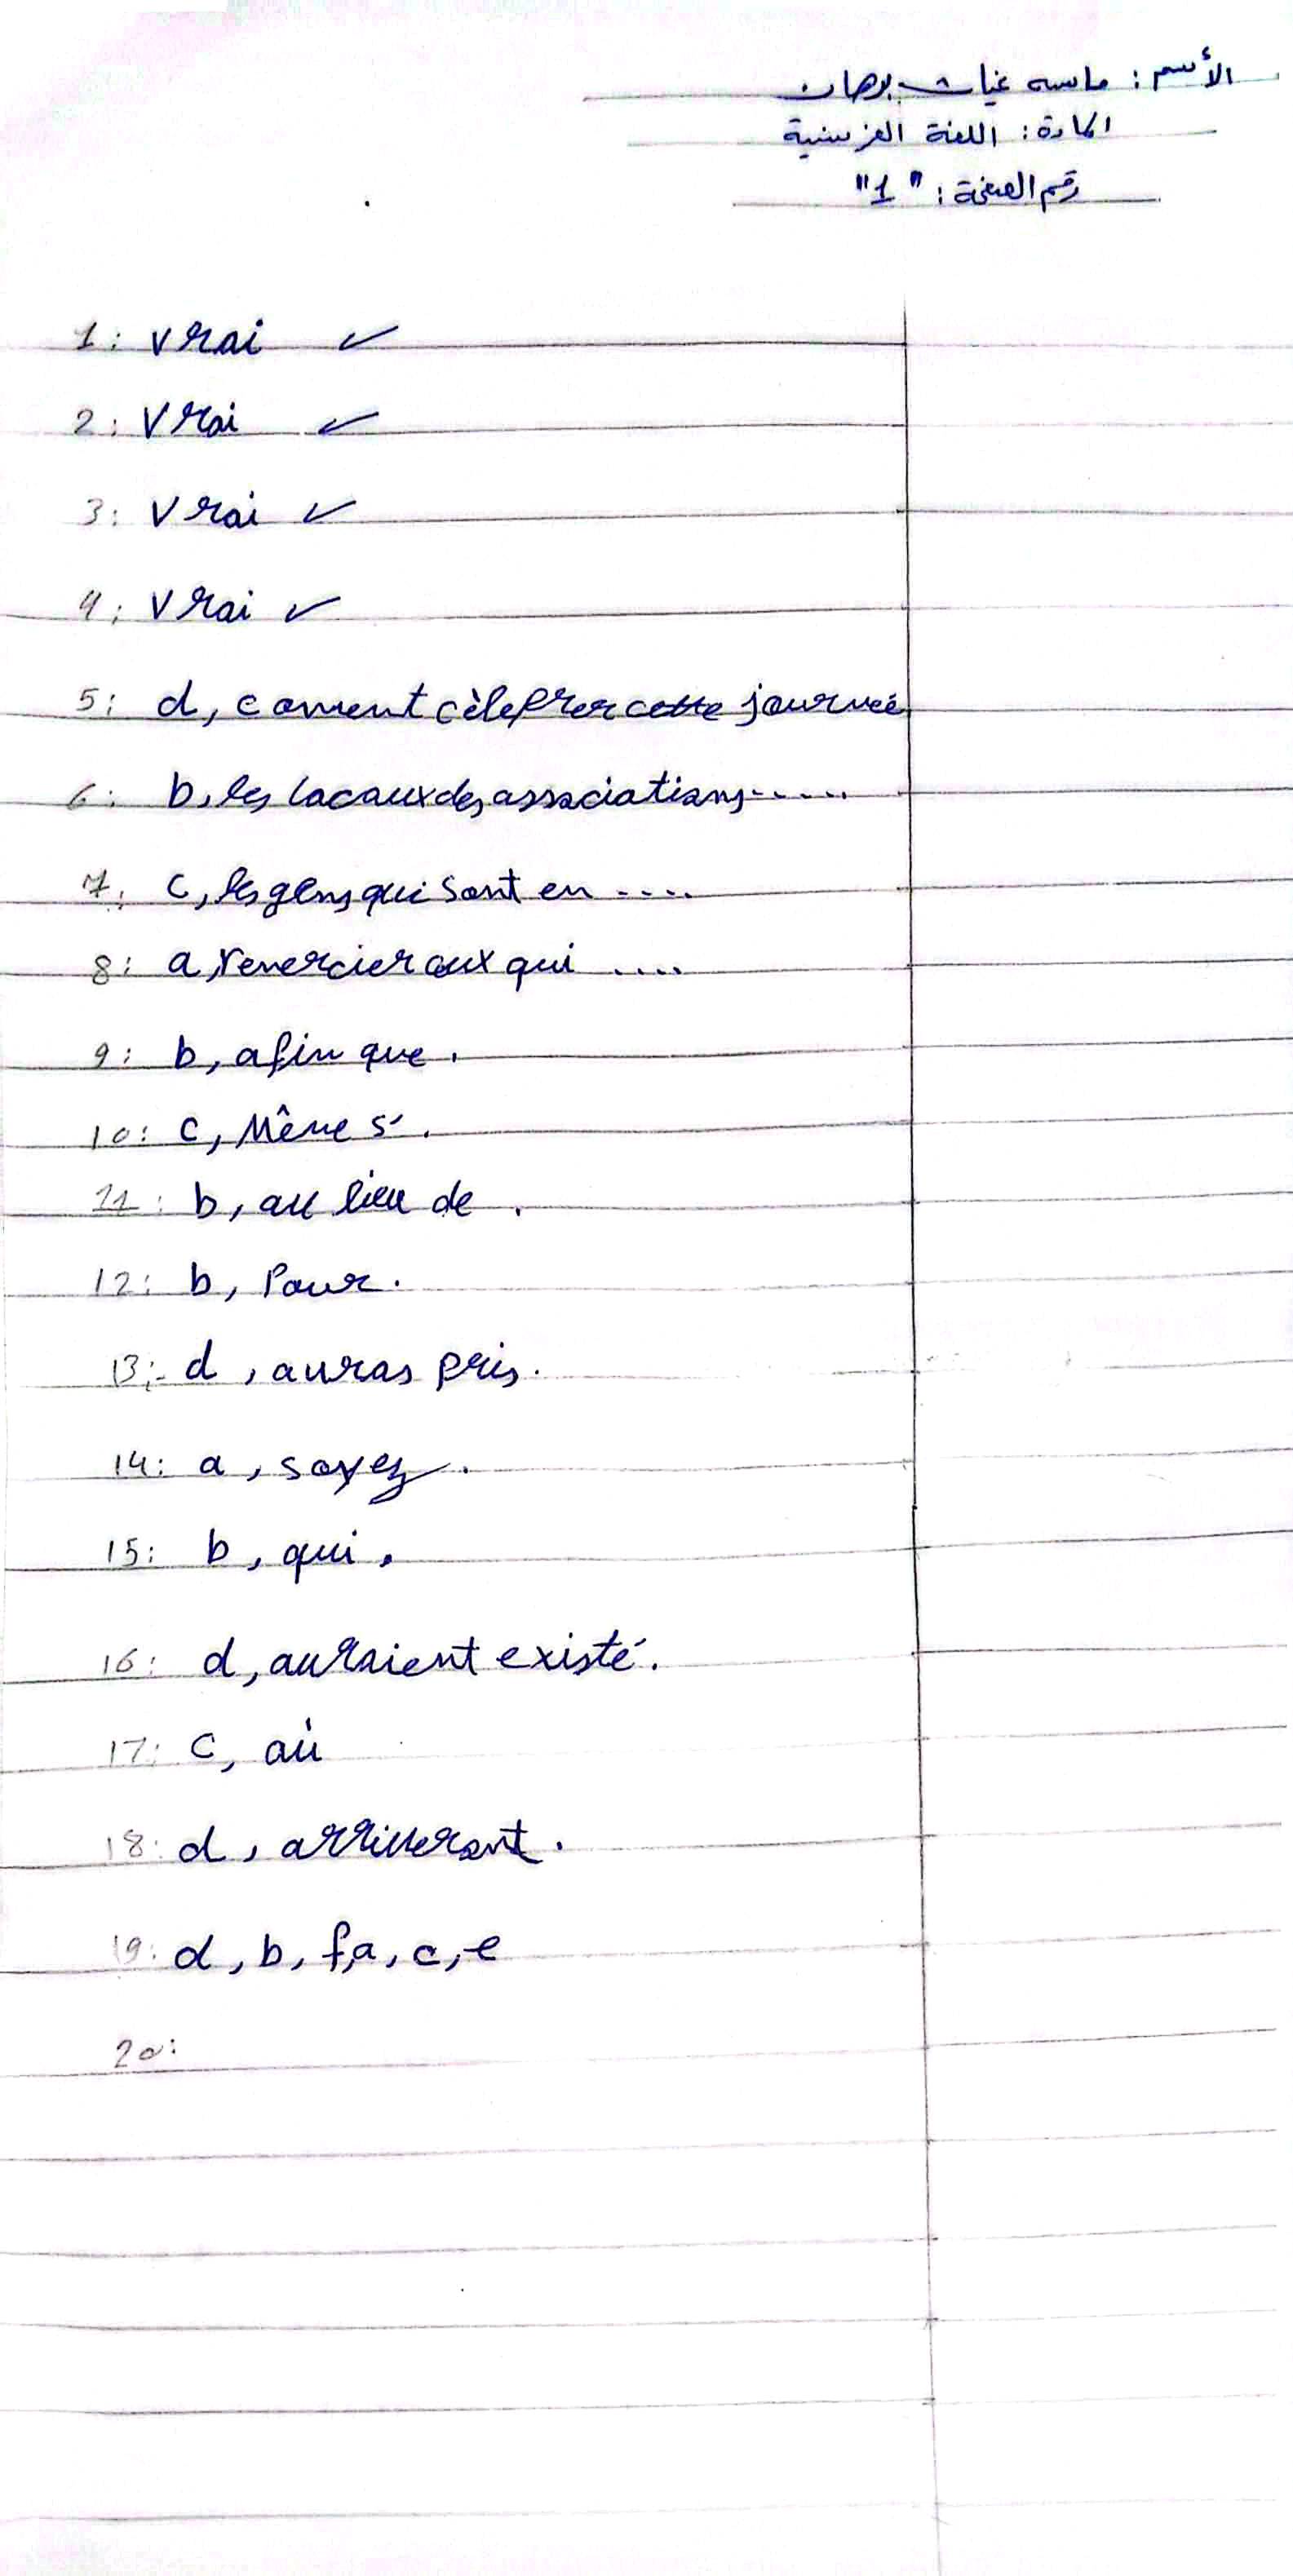 الأسم: ماسه غياث برهان
المادة: اللغة الفرنسية
رقم الصفحة: "1"
1: vrai ✓
2: Vrai ✓
3: Vrai ✓
4: Vrai ✓
5: d, coment cèlebrer cette journée
6: b, les locaux des associations......
7: c, les gens qui sont en ....
8: a, remercier aux qui ....
9: b, afin que.
10: c, Même si.
11: b, au lieu de.
12: b, Pour.
13: d, auras pris.
14: a, soyez.
15: b, qui.
16: d, auraient existé.
17: c, où
18: d, arriveront.
19: d, b, f, a, c, e
20: